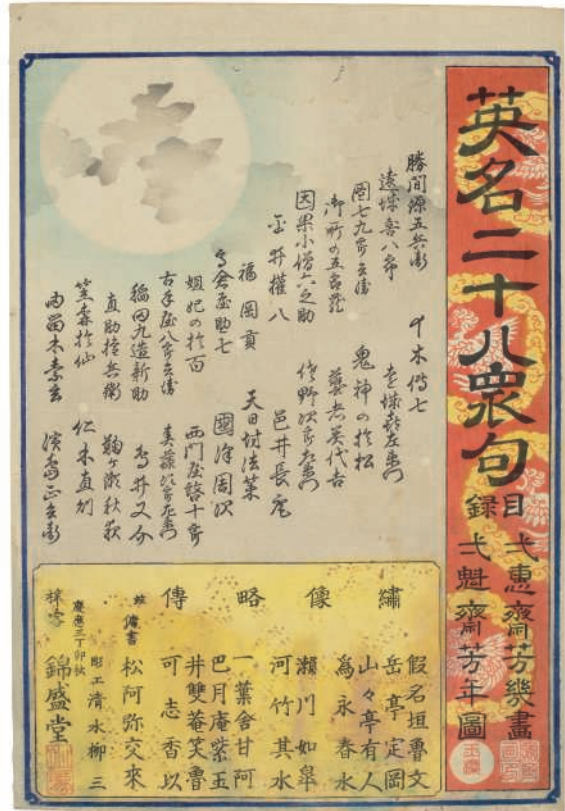 英名二十八衆句
目録
弌惠齋芳幾畫
弌魁齋芳年圖
勝間源五兵衛
遠城喜八郎
團七九郎兵衛
御所の五郎蔵
因果小僧六之助
平井權八
福岡貢
鳥倉屋助七
妲妃の於百
古手屋八郎兵衛
稲田九造新助
直助権兵衛
笠森於仙
由留木素玄
十木傳七
遠城治左衛門
鬼神の於松
藝者美代吉
佐野次郎左衛門
邑井長庵
天日坊法策
國澤周次
西門屋啓十郎
春藤治郎左衛門
高倉屋助七
鞠ヶ瀬秋夜
仁木直則
濱島正兵衛
繍像略傳
假名垣魯文
岳亭定岡
山々亭有人
爲永春水
瀬川如皐
河竹其水
一葉舎甘阿
巴月庵紫玉
井雙菴笑魯
可志香以
傭書
松阿弥交來
彫工清水柳三
慶應三丁卯秋
梓客
錦盛堂